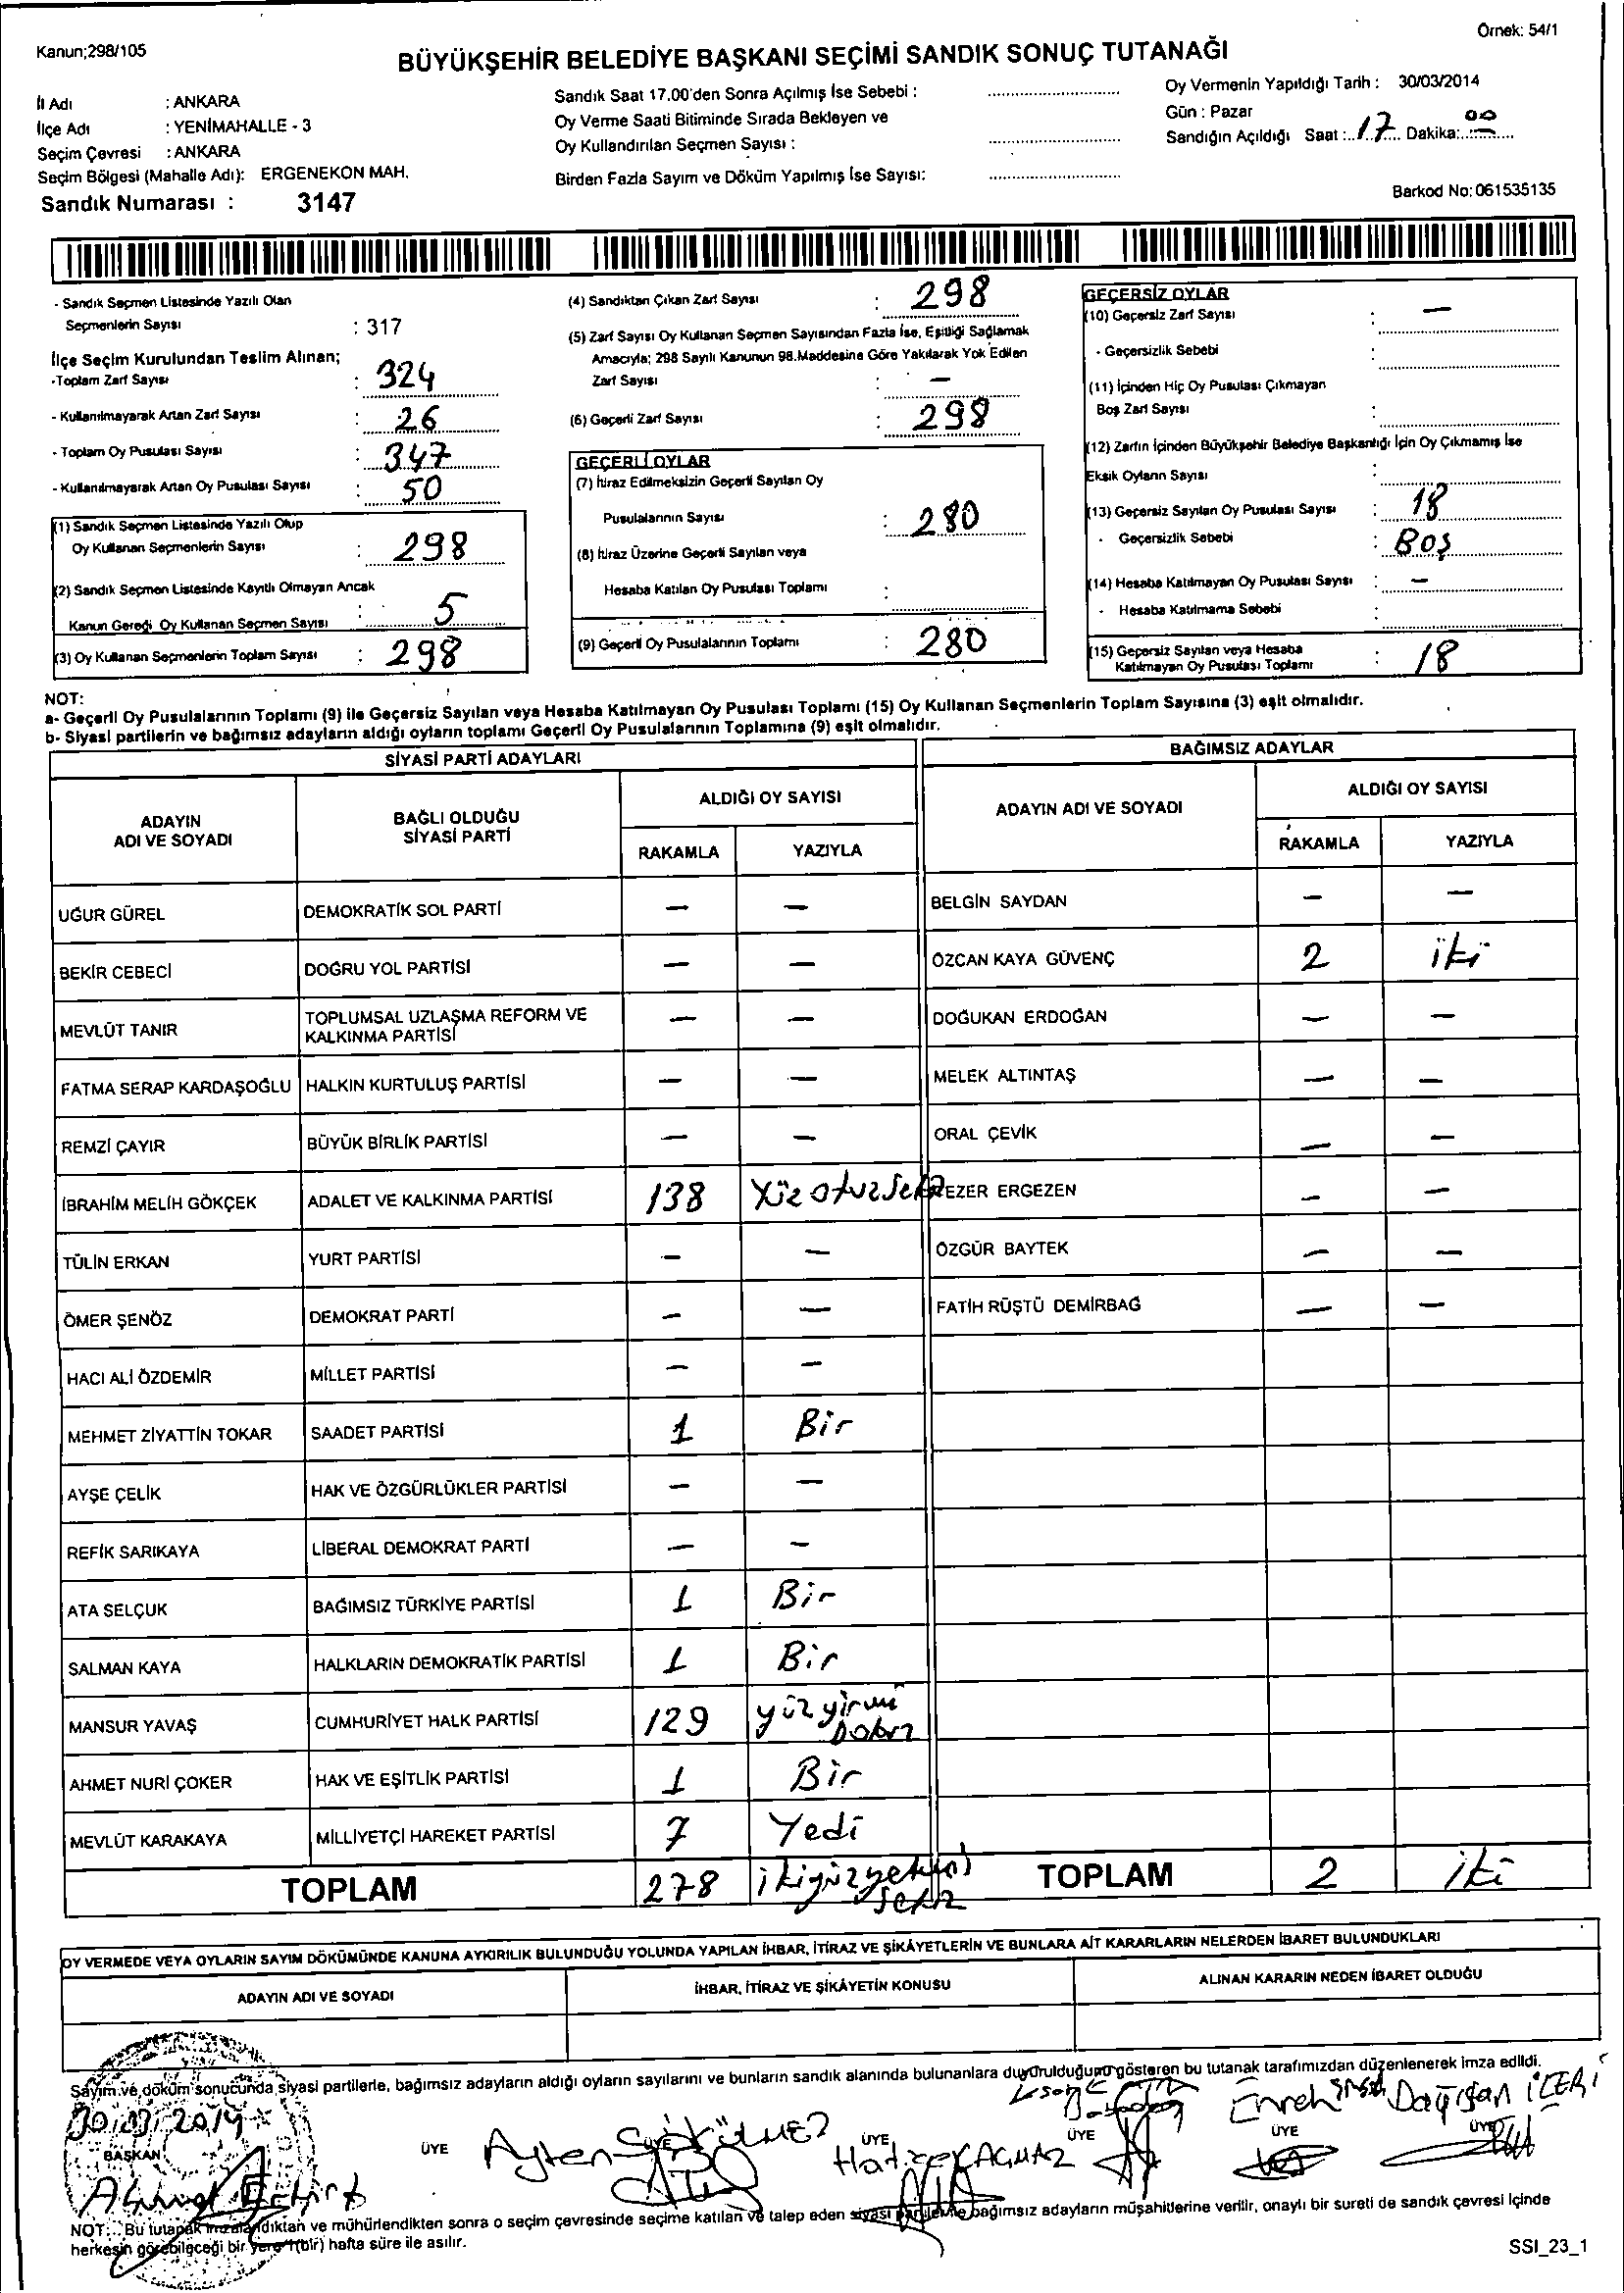 Kanun;298/105
Örnek: 54/1
BÜYÜKŞEHİR BELEDİYE BAŞKANI SEÇİMİ SANDIK SONUÇ TUTANAĞI
İl Adı : ANKARA
İlçe Adı : YENİMAHALLE - 3
Seçim Çevresi : ANKARA
Seçim Bölgesi (Mahalle Adı): ERGENEKON MAH.
Sandık Numarası : 3147
Sandık Saat 17.00'den Sonra Açılmış İse Sebebi :
Oy Verme Saati Bitiminde Sırada Bekleyen ve
Oy Kullandırılan Seçmen Sayısı :
Birden Fazla Sayım ve Döküm Yapılmış İse Sayısı:
Oy Vermenin Yapıldığı Tarih : 30/03/2014
Gün : Pazar
Sandığın Açıldığı Saat : 17 Dakika: 00
Barkod No: 061535135
- Sandık Seçmen Listesinde Yazılı Olan
Seçmenlerin Sayısı : 317
İlçe Seçim Kurulundan Teslim Alınan;
-Toplam Zarf Sayısı : 324
- Kullanılmayarak Artan Zarf Sayısı : 26
- Toplam Oy Pusulası Sayısı : 347
- Kullanılmayarak Artan Oy Pusulası Sayısı : 50
(1) Sandık Seçmen Listesinde Yazılı Olup
Oy Kullanan Seçmenlerin Sayısı : 298
(2) Sandık Seçmen Listesinde Kayıtlı Olmayan Ancak
Kanun Gereği Oy Kullanan Seçmen Sayısı : 5
(3) Oy Kullanan Seçmenlerin Toplam Sayısı : 298
(4) Sandıktan Çıkan Zarf Sayısı : 298
(5) Zarf Sayısı Oy Kullanan Seçmen Sayısından Fazla İse, Eşitliği Sağlamak
Amacıyla; 298 Sayılı Kanunun 98.Maddesine Göre Yakılarak Yok Edilen
Zarf Sayısı : —
(6) Geçerli Zarf Sayısı : 298
GEÇERLİ OYLAR
(7) İtiraz Edilmeksizin Geçerli Sayılan Oy
Pusulalarının Sayısı : 280
(8) İtiraz Üzerine Geçerli Sayılan veya
Hesaba Katılan Oy Pusulası Toplamı :
(9) Geçerli Oy Pusulalarının Toplamı : 280
GEÇERSİZ OYLAR
(10) Geçersiz Zarf Sayısı : —
- Geçersizlik Sebebi :
(11) İçinden Hiç Oy Pusulası Çıkmayan
Boş Zarf Sayısı :
(12) Zarfın İçinden Büyükşehir Belediye Başkanlığı İçin Oy Çıkmamış İse
Eksik Oyların Sayısı :
(13) Geçersiz Sayılan Oy Pusulası Sayısı : 18
- Geçersizlik Sebebi : Boş
(14) Hesaba Katılmayan Oy Pusulası Sayısı : —
- Hesaba Katılmama Sebebi :
(15) Geçersiz Sayılan veya Hesaba
Katılmayan Oy Pusulası Toplamı : 18
NOT:
a- Geçerli Oy Pusulalarının Toplamı (9) ile Geçersiz Sayılan veya Hesaba Katılmayan Oy Pusulası Toplamı (15) Oy Kullanan Seçmenlerin Toplam Sayısına (3) eşit olmalıdır.
b- Siyasi partilerin ve bağımsız adayların aldığı oyların toplamı Geçerli Oy Pusulalarının Toplamına (9) eşit olmalıdır.
SİYASİ PARTİ ADAYLARI
ADAYIN
ADI VE SOYADI
BAĞLI OLDUĞU
SİYASİ PARTİ
ALDIĞI OY SAYISI
RAKAMLA YAZIYLA
UĞUR GÜREL DEMOKRATİK SOL PARTİ — —
BEKİR CEBECİ DOĞRU YOL PARTİSİ — —
MEVLÜT TANIR TOPLUMSAL UZLAŞMA REFORM VE
KALKINMA PARTİSİ — —
FATMA SERAP KARDAŞOĞLU HALKIN KURTULUŞ PARTİSİ — —
REMZİ ÇAYIR BÜYÜK BİRLİK PARTİSİ — —
İBRAHİM MELİH GÖKÇEK ADALET VE KALKINMA PARTİSİ 138 Yüz otuz sekiz
TÜLİN ERKAN YURT PARTİSİ — —
ÖMER ŞENÖZ DEMOKRAT PARTİ — —
HACI ALİ ÖZDEMİR MİLLET PARTİSİ — —
MEHMET ZİYATTİN TOKAR SAADET PARTİSİ 1 Bir
AYŞE ÇELİK HAK VE ÖZGÜRLÜKLER PARTİSİ — —
REFİK SARIKAYA LİBERAL DEMOKRAT PARTİ — —
ATA SELÇUK BAĞIMSIZ TÜRKİYE PARTİSİ 1 Bir
SALMAN KAYA HALKLARIN DEMOKRATİK PARTİSİ 1 Bir
MANSUR YAVAŞ CUMHURİYET HALK PARTİSİ 129 yüz yirmi
Dokuz
AHMET NURİ ÇOKER HAK VE EŞİTLİK PARTİSİ 1 Bir
MEVLÜT KARAKAYA MİLLİYETÇİ HAREKET PARTİSİ 7 Yedi
TOPLAM 278 ikiyüzyetmiş
sekiz
BAĞIMSIZ ADAYLAR
ADAYIN ADI VE SOYADI
ALDIĞI OY SAYISI
RAKAMLA YAZIYLA
BELGİN SAYDAN — —
ÖZCAN KAYA GÜVENÇ 2 iki
DOĞUKAN ERDOĞAN — —
MELEK ALTINTAŞ — —
ORAL ÇEVİK — —
EZER ERGEZEN — —
ÖZGÜR BAYTEK — —
FATİH RÜŞTÜ DEMİRBAĞ — —
TOPLAM 2 iki
OY VERMEDE VEYA OYLARIN SAYIM DÖKÜMÜNDE KANUNA AYKIRILIK BULUNDUĞU YOLUNDA YAPILAN İHBAR, İTİRAZ VE ŞİKÂYETLERİN VE BUNLARA AİT KARARLARIN NELERDEN İBARET BULUNDUKLARI
ADAYIN ADI VE SOYADI
İHBAR, İTİRAZ VE ŞİKÂYETİN KONUSU
ALINAN KARARIN NEDEN İBARET OLDUĞU
Sayım ve döküm sonucunda siyasi partilerle, bağımsız adayların aldığı oyların sayılarını ve bunların sandık alanında bulunanlara duyurulduğunu gösteren bu tutanak tarafımızdan düzenlenerek imza edildi.
30/03/2014
BAŞKAN ÜYE ÜYE ÜYE ÜYE ÜYE ÜYE
Ayten
Hatice KAÇMAZ
Emrah
Dağıstan İLERİ
NOT: Bu tutanak imzalandıktan ve mühürlendikten sonra o seçim çevresinde seçime katılan ve talep eden siyasi partilerle bağımsız adayların müşahitlerine verilir, onaylı bir sureti de sandık çevresi içinde
herkesin görebileceği bir yere 1(bir) hafta süre ile asılır.
SSI_23_1